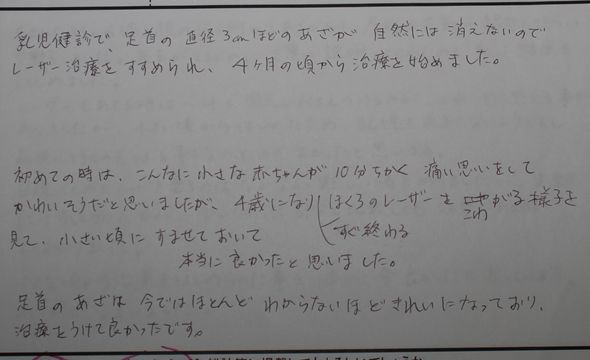 乳児健診で、足首の直径3cmほどのあざが自然には消えないので
レーザー治療をすすめられ、4ヶ月の頃から治療を始めました。
初めての時は、こんなに小さな赤ちゃんが10分ちかく痛い思いをして
かわいそうだと思いましたが、4歳になりほくろのレーザーをこわがる様子を
すぐ終わる
見て、小さい頃にすませておいて
本当に良かったと思いました。
足首のあざは今ではほとんどわからないほどきれいになっており、
治療をうけて良かったです。